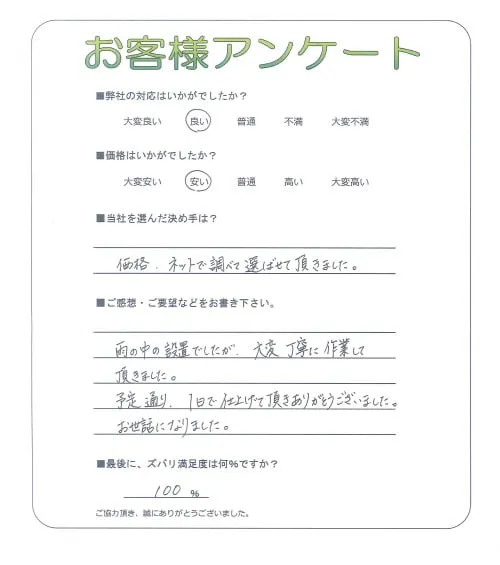 お客様アンケート
■弊社の対応はいかがでしたか？
大変良い 良い 普通 不満 大変不満
■価格はいかがでしたか？
大変安い 安い 普通 高い 大変高い
■当社を選んだ決め手は？
価格、ネットで調べて選ばせて頂きました。
■ご感想・ご要望などをお書き下さい。
雨の中の設置でしたが、大変丁寧に作業して
頂きました。
予定通り、1日で仕上げて頂きありがとうございました。
お世話になりました。
■最後に、ズバリ満足度は何%ですか？
100 %
ご協力頂き、誠にありがとうございました。